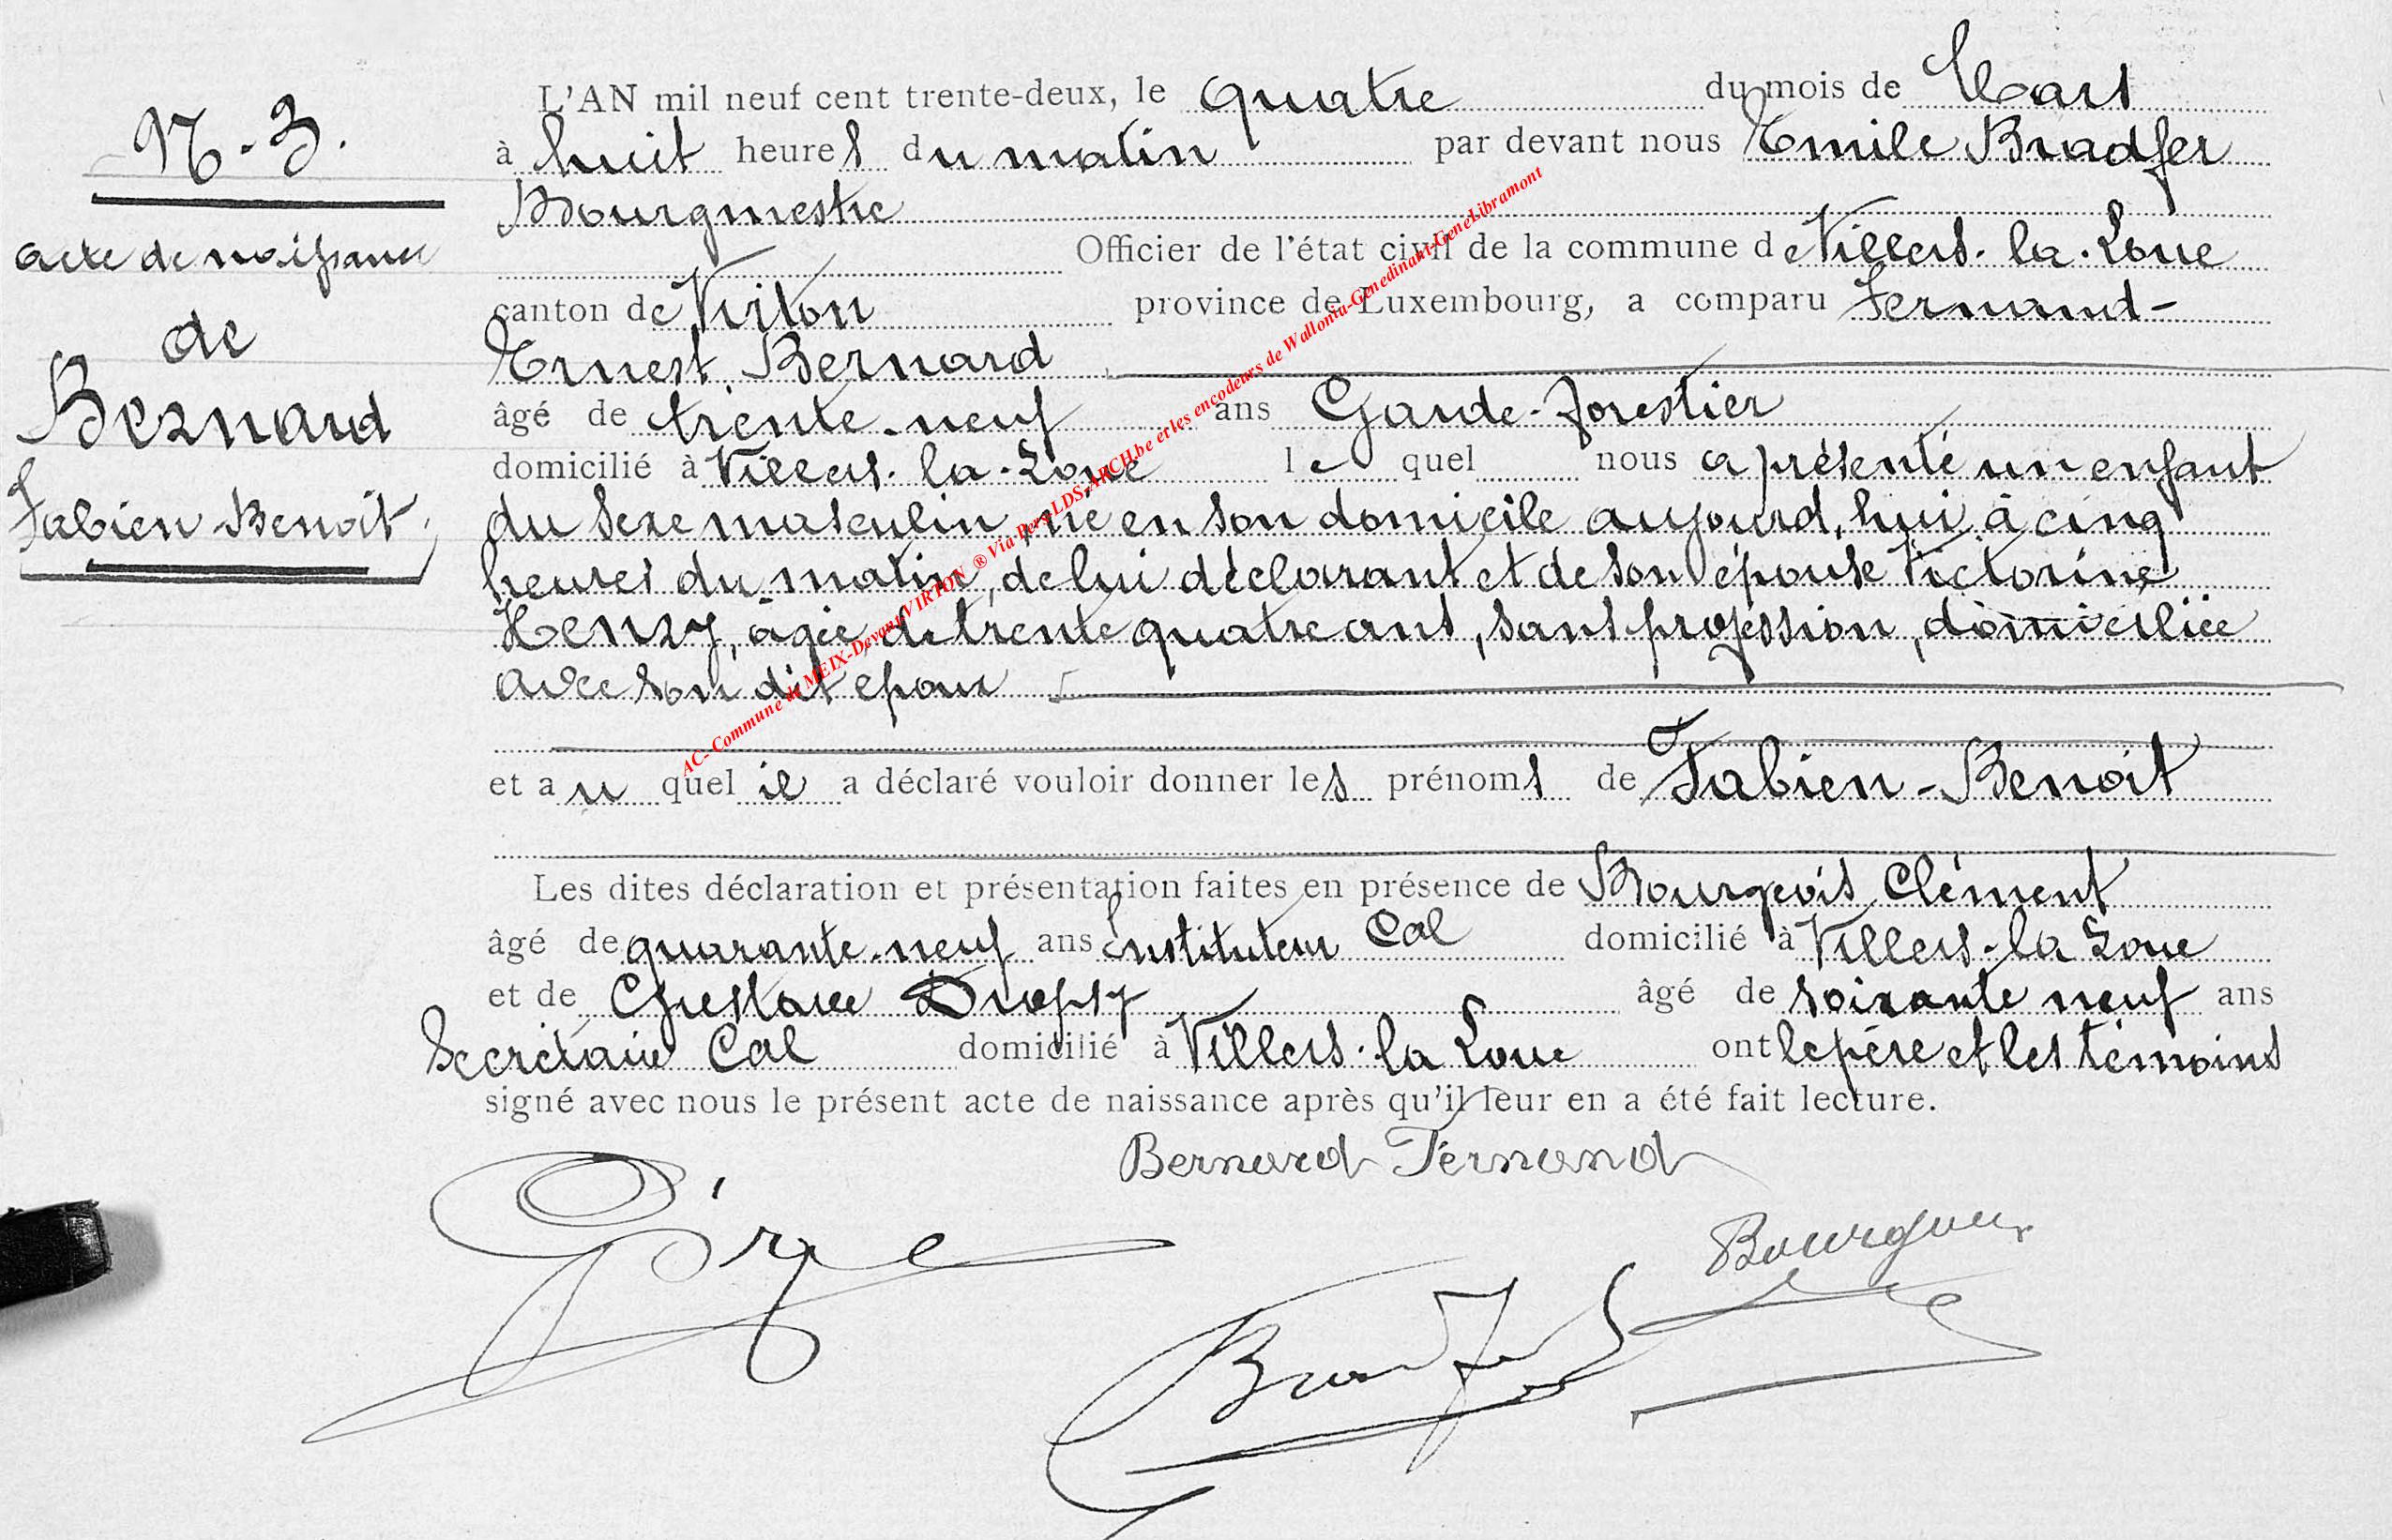 N - 3.
acte de naissance
de
Bernard
Fabien Benoit
L'AN mil neuf cent trente-deux, le quatre du mois de Mars
à huit heures du matin par devant nous Emile Bradfer
Bourgmestre
Officier de l'état civil de la commune de Villers-la-Loue
canton de Virton province de Luxembourg, a comparu Fernand-
Ernest Bernard
âgé de trente-neuf ans Garde-forestier
domicilié à Villers-la-Loue lequel nous a présenté un enfant
du sexe masculin, né en son domicile aujourd'hui à cinq
heures du matin, de lui déclarant et de son épouse Victorine
Henry, agée de trente quatre ans, sans profession, domiciliée
avec son dit epoux
et au quel il a déclaré vouloir donner les prénoms de Fabien-Benoit
Les dites déclaration et présentation faites en présence de Bourgeois Clément
âgé de quarante-neuf ans Instituteur Cal domicilié à Villers-la Loue
et de Gustave Dropsy âgé de soixante neuf ans
Secrétaire Cal domicilié à Villers-la Loue ont le père et les témoins
signé avec nous le présent acte de naissance après qu'il leur en a été fait lecture.
Bernard Fernand
Bourgeois
Bradfer
AC- Commune de MEIX-Devant-VIRTON ® Via Pers LDS-ARCH.be et les encodeurs de Wallonia-Genedinant-GeneLibramont